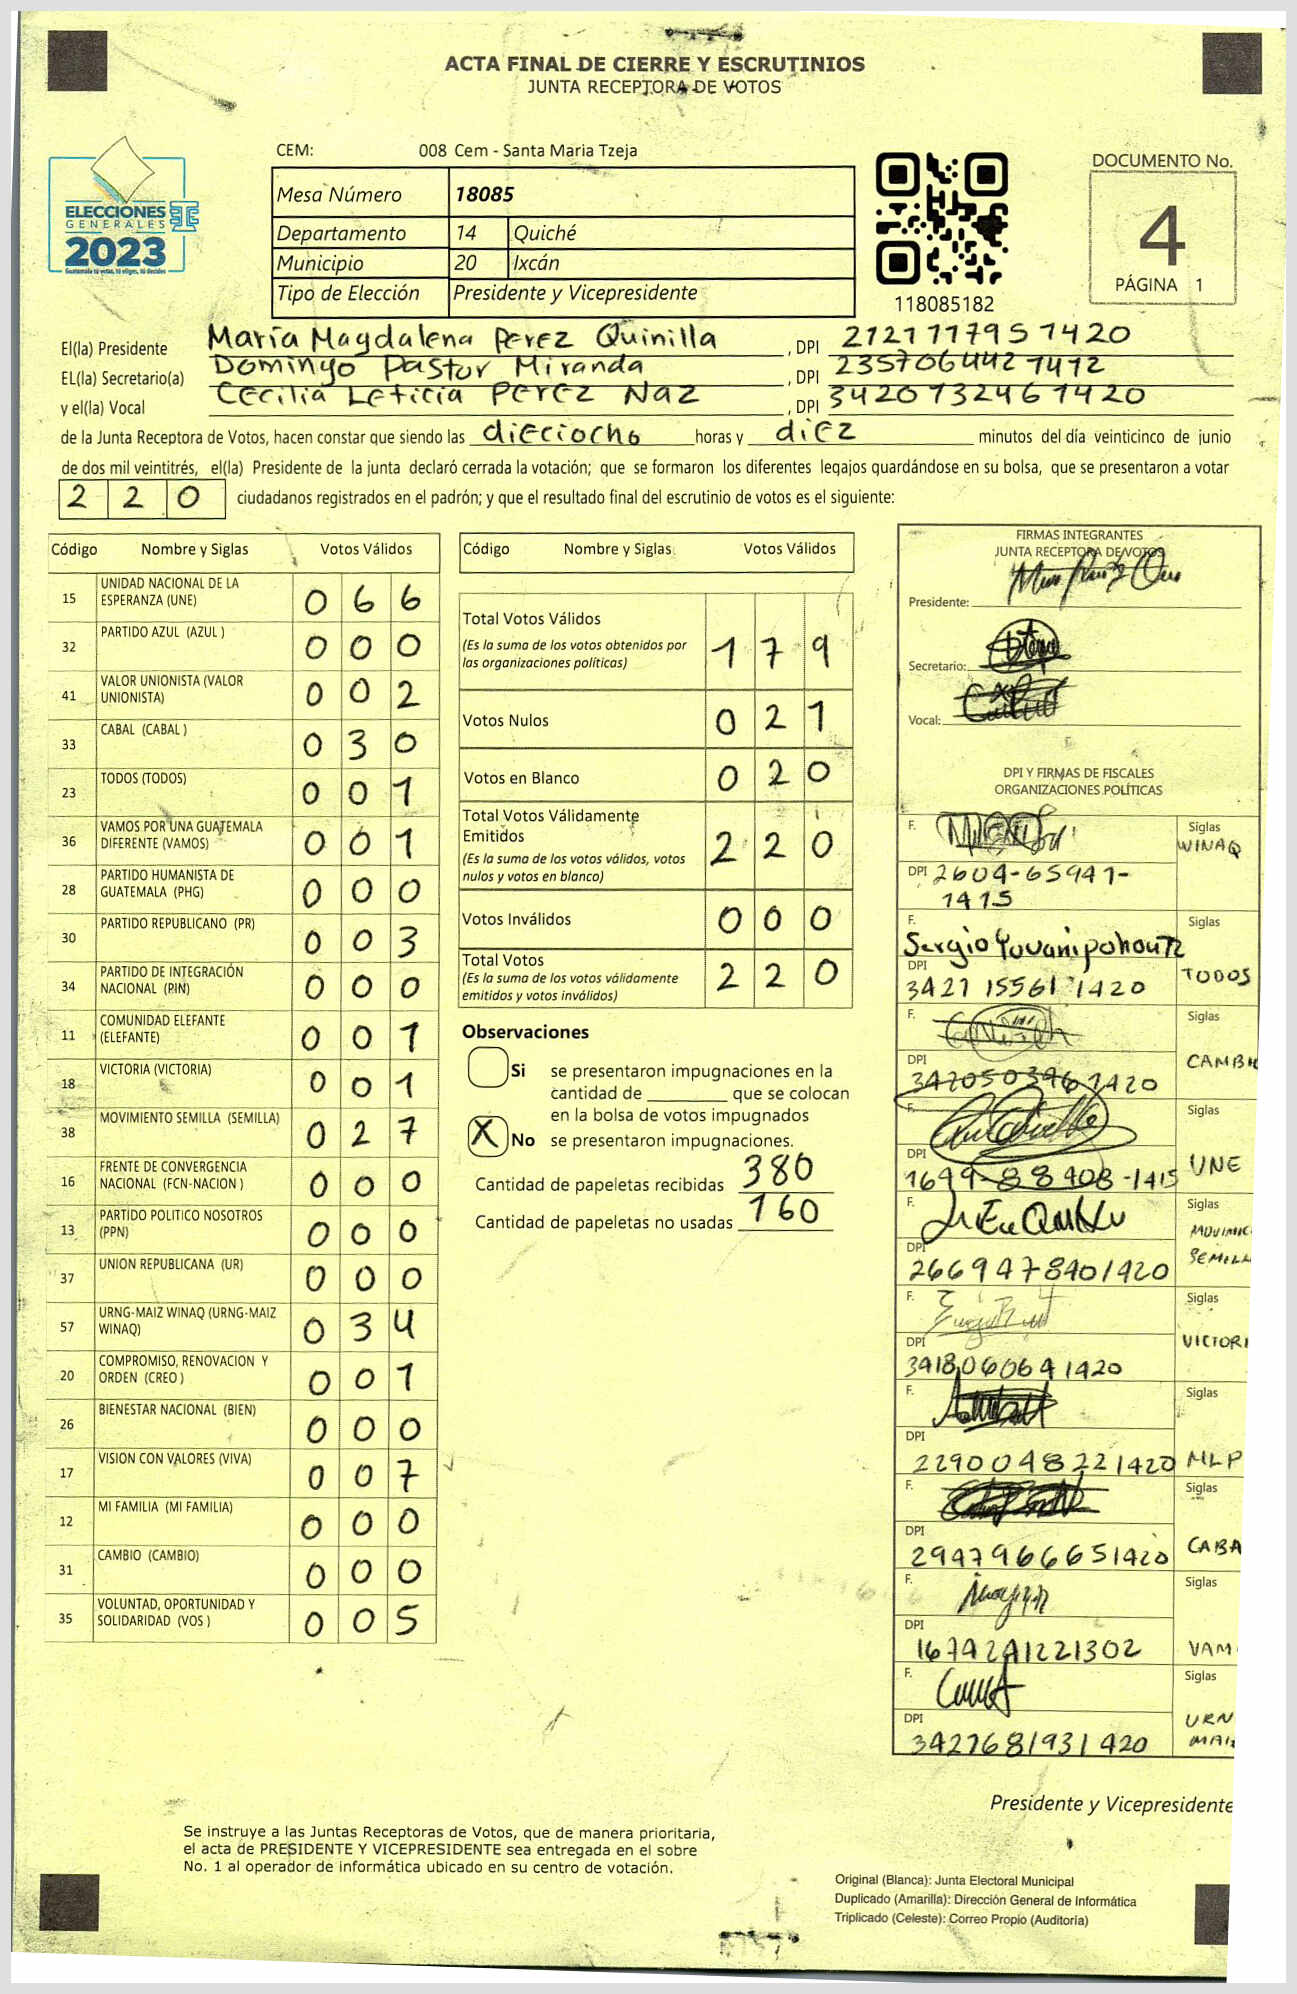 ACTA FINAL DE CIERRE Y ESCRUTINIOS
JUNTA RECEPTORA DE VOTOS
ELECCIONES
GENERALES
2023
Guatemala tú votas, tú eliges, tú decides
CEM: 008 Cem - Santa Maria Tzeja
Mesa Número 18085
Departamento 14 Quiché
Municipio 20 Ixcán
Tipo de Elección Presidente y Vicepresidente
118085182
DOCUMENTO No.
4
PÁGINA 1
El(la) Presidente María Magdalena Perez Quinilla , DPI 2121777951420
EL(la) Secretario(a) Domingo Pastor Miranda , DPI 2357064421412
y el(la) Vocal Cecilia Leticia Perez Naz , DPI 3420732461420
de la Junta Receptora de Votos, hacen constar que siendo las dieciocho horas y diez minutos del día veinticinco de junio
de dos mil veintitrés, el(la) Presidente de la junta declaró cerrada la votación; que se formaron los diferentes legajos guardándose en su bolsa, que se presentaron a votar
2 2 0 ciudadanos registrados en el padrón; y que el resultado final del escrutinio de votos es el siguiente:
Código Nombre y Siglas Votos Válidos
15 UNIDAD NACIONAL DE LA ESPERANZA (UNE) 0 6 6
32 PARTIDO AZUL (AZUL ) 0 0 0
41 VALOR UNIONISTA (VALOR UNIONISTA) 0 0 2
33 CABAL (CABAL ) 0 3 0
23 TODOS (TODOS) 0 0 1
36 VAMOS POR UNA GUATEMALA DIFERENTE (VAMOS) 0 0 1
28 PARTIDO HUMANISTA DE GUATEMALA (PHG) 0 0 0
30 PARTIDO REPUBLICANO (PR) 0 0 3
34 PARTIDO DE INTEGRACIÓN NACIONAL (PIN) 0 0 0
11 COMUNIDAD ELEFANTE (ELEFANTE) 0 0 1
18 VICTORIA (VICTORIA) 0 0 1
38 MOVIMIENTO SEMILLA (SEMILLA) 0 2 7
16 FRENTE DE CONVERGENCIA NACIONAL (FCN-NACION ) 0 0 0
13 PARTIDO POLITICO NOSOTROS (PPN) 0 0 0
37 UNION REPUBLICANA (UR) 0 0 0
57 URNG-MAIZ WINAQ (URNG-MAIZ WINAQ) 0 3 4
20 COMPROMISO, RENOVACION Y ORDEN (CREO ) 0 0 1
26 BIENESTAR NACIONAL (BIEN) 0 0 0
17 VISION CON VALORES (VIVA) 0 0 7
12 MI FAMILIA (MI FAMILIA) 0 0 0
31 CAMBIO (CAMBIO) 0 0 0
35 VOLUNTAD, OPORTUNIDAD Y SOLIDARIDAD (VOS ) 0 0 5
Código Nombre y Siglas Votos Válidos
Total Votos Válidos
(Es la suma de los votos obtenidos por las organizaciones políticas) 1 7 9
Votos Nulos 0 2 1
Votos en Blanco 0 2 0
Total Votos Válidamente Emitidos
(Es la suma de los votos válidos, votos nulos y votos en blanco) 2 2 0
Votos Inválidos 0 0 0
Total Votos
(Es la suma de los votos válidamente emitidos y votos inválidos) 2 2 0
Observaciones
Si se presentaron impugnaciones en la
cantidad de ________ que se colocan
en la bolsa de votos impugnados
X No se presentaron impugnaciones.
Cantidad de papeletas recibidas 380
Cantidad de papeletas no usadas 160
FIRMAS INTEGRANTES
JUNTA RECEPTORA DE VOTOS
Presidente:
Secretario:
Vocal:
DPI Y FIRMAS DE FISCALES
ORGANIZACIONES POLÍTICAS
F. Siglas WINAQ
DPI 2604-65941-
1415
F. Sergio Siglas
DPI 3421 15561 1420 TODOS
F. Siglas
DPI 3420503961420 CAMBI
F. Siglas
DPI 1699-88908-1415 UNE
F. Siglas
DPI 2669478401420 MOVIMIE
SEMILLA
F. Siglas
DPI 3418060641420 VICTORI
F. Siglas
DPI 2290048221420 MLP
F. Siglas
DPI 2947966651420 CABA
F. Siglas
DPI 1674241221302 VAM
F. Siglas
DPI 3427681931420 URN
MAIZ
Presidente y Vicepresidente
Se instruye a las Juntas Receptoras de Votos, que de manera prioritaria,
el acta de PRESIDENTE Y VICEPRESIDENTE sea entregada en el sobre
No. 1 al operador de informática ubicado en su centro de votación.
Original (Blanca): Junta Electoral Municipal
Duplicado (Amarilla): Dirección General de Informática
Triplicado (Celeste): Correo Propio (Auditoría)